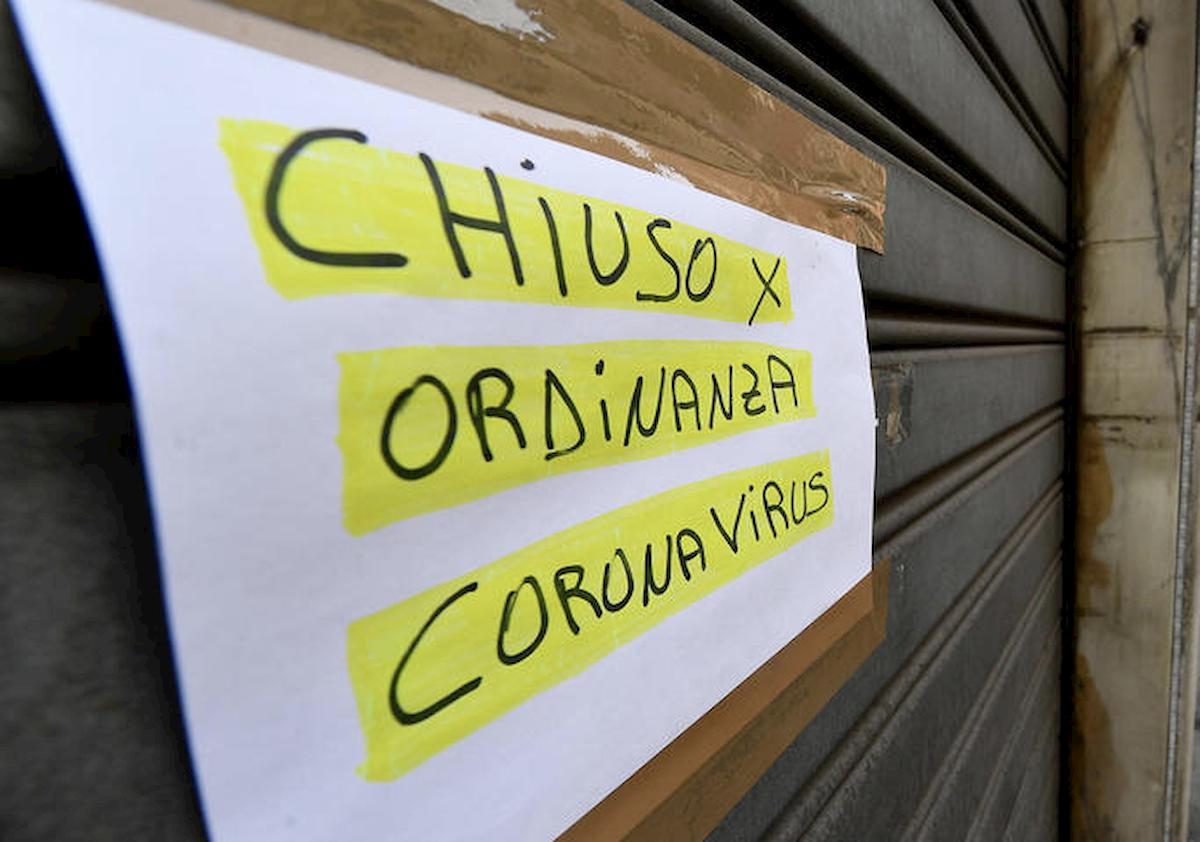 CHIUSO X
ORDINANZA
CORONAVIRUS